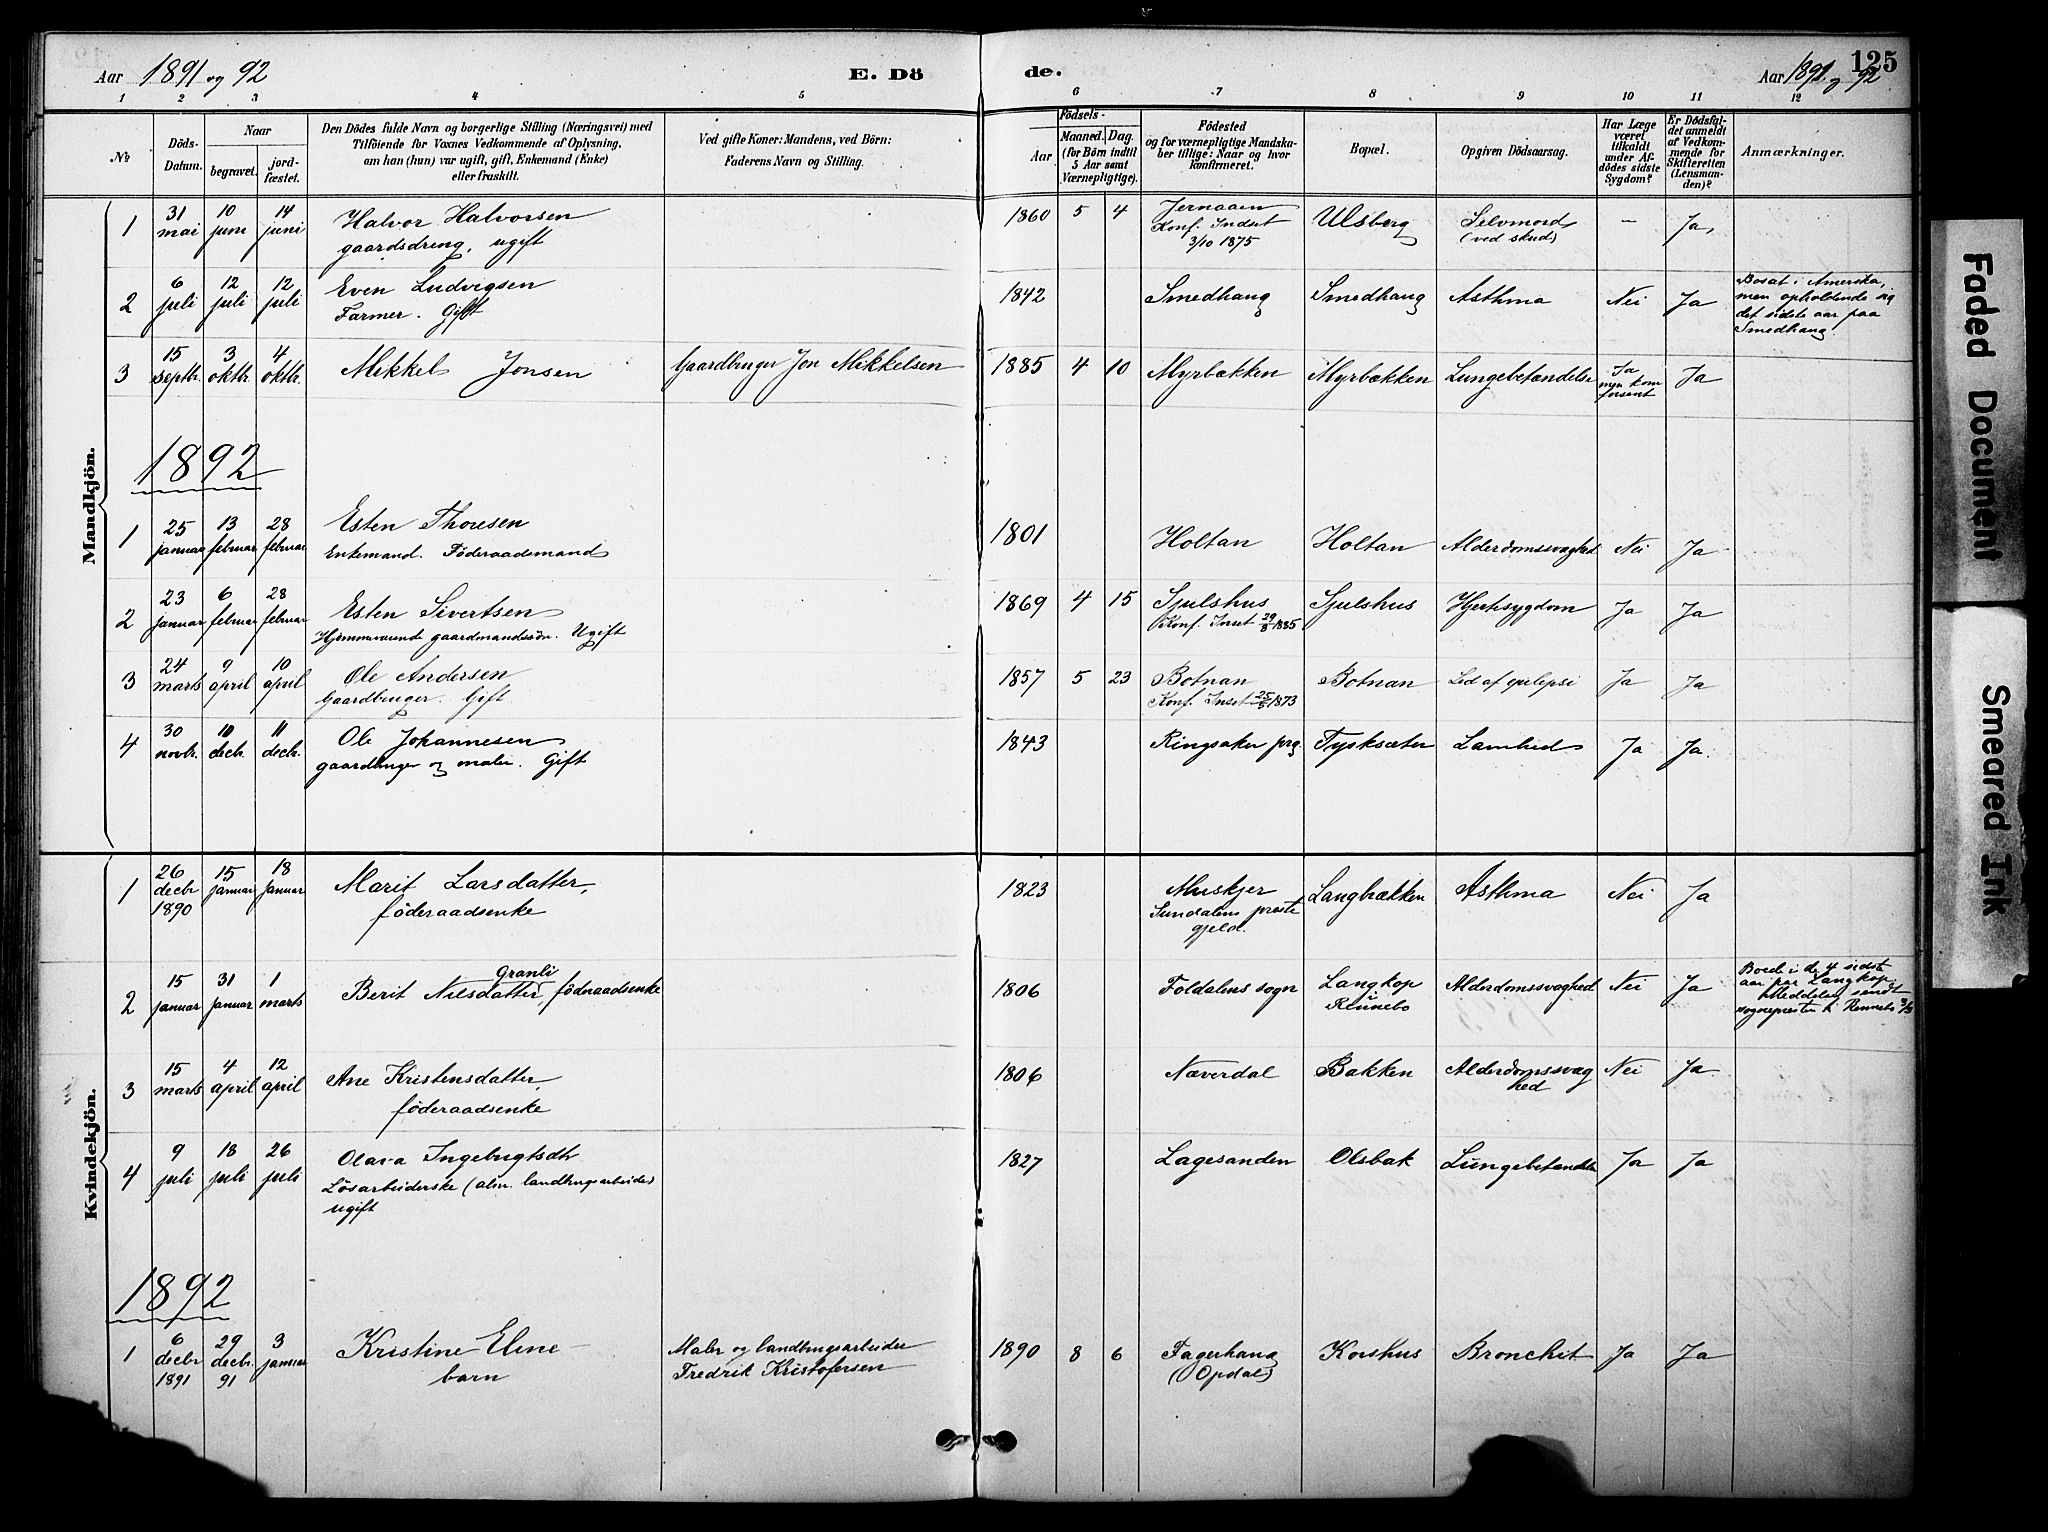 Aar 1891 og 92 E. Dö
de. Aar 1891 og 92 125
1 2 3 4 5 6 7 8 9 10 11 12
№
Döds-Datum.
Naar
begravet.
jord-fæstet.
Den Dödes fulde Navn og borgerlige Stilling (Næringsvei) med
Tilföiende for Voxnes Vedkommende af Oplysning,
om han (hun) var ugift, gift, Enkemand (Enke)
eller fraskilt.
Ved gifte Koner: Mandens, ved Börn:
Faderens Navn og Stilling.
Födsels-
Aar
Maaned. Dag.
(for Börn indtil
5 Aar samt
Værnepligtige).
Födested
og for værnepligtige Mandska-
ber tillige: Naar og hvor
konfirmeret.
Bopæl.
Opgiven Dödsaarsag.
Har Læge
været
tilkaldt
under Af-
dödes sidste
Sygdom?
Er Dödsfal-
det anmeldt
af Vedkom-
mende for
Skifteretten
(Lensman-
den)?
Anmærkninger.
Mandkjön.
1 31 mai 10 juni 14 juni Halvor Halvorsen
gaardsdreng, ugift
1860 5 4 Jernaaen
Konf. Indset
3/10 1875
Ulsberg Selvmord
(ved skud)
- Ja
2 6 juli 12 juli 12 juli Even Ludvigsen
Farmer. Gift
1842 Smedhaug Smedhaug Asthma Nei Ja
Bosat i Amerika,
men opholdende sig
det sidste aar paa
Smedhaug
3 15 septbr. 3 oktbr. 4 oktbr. Mikkel Jonsen Gaardbruger Jon Mikkelsen 1885 4 10 Myrbækken Myrbækken Lungebetændelse Ja
men kom
forsent
Ja
1892
1 25 januar 13 februar 28 februar Esten Thoresen
Enkemand. Föderaadsmand
1801 Holtan Holtan Alderdomssvaghed Nei Ja
2 23 januar 6 februar 28 februar Esten Sivertsen
Hjemmeværende gaardmandssön. Ugift
1869 4 15 Sjulshus
Konf. Inset 29/8 1885
Sjulshus Hjertesygdom Ja Ja
3 24 marts 9 april 10 april Ole Andersen
Gaardbruger. Gift
1857 5 23 Botnan
Konf. Inset 25/5 1873
Botnan Led af epilepsi Ja Ja
4 30 novbr. 10 decbr. 11 decbr. Ole Johannesen
gaardbruger og maler. Gift
1843 Ringsaker prg Tysksæter Lamhed Ja Ja.
Kvindekjön.
1 26 decbr 1890 15 januar 18 januar Marit Larsdatter,
föderaadsenke
1823 Muskjer
Sundalens preste
gjeld.
Langbækken Asthma Nei Ja
2 15 januar 31 januar 1 marts Berit Nilsdatter Granli, föderaadsenke
1806 Foldalens sogn Langkop
Rennebo
Alderdomssvaghed Nei Ja
Boede i de 4 sidste
aar paa Langkop
Meddelelse sendt
sognepresten i Rennebo
3 15 marts 4 april 12 april Ane Kristensdatter,
föderaadsenke
1806 Næverdal Bakken Alderdomssvag
hed
Nei Ja
4 9 juli 18 juli 26 juli Olava Ingebrigtsdtr
Lösarbeiderske (alm. landbrugsarbeide)
ugift
1827 Lagesanden Olsbak Lungebetændelse Ja Ja
1892
1 6 decbr 1891 29 decbr. 91 3 januar Kristine Eline
barn
Maler og landbrugsarbeider
Fredrik Kristofersen
1890 8 6 Fagerhaug
(Opdal)
Korshus Bronchit Ja Ja
Faded Document
Smeared Ink